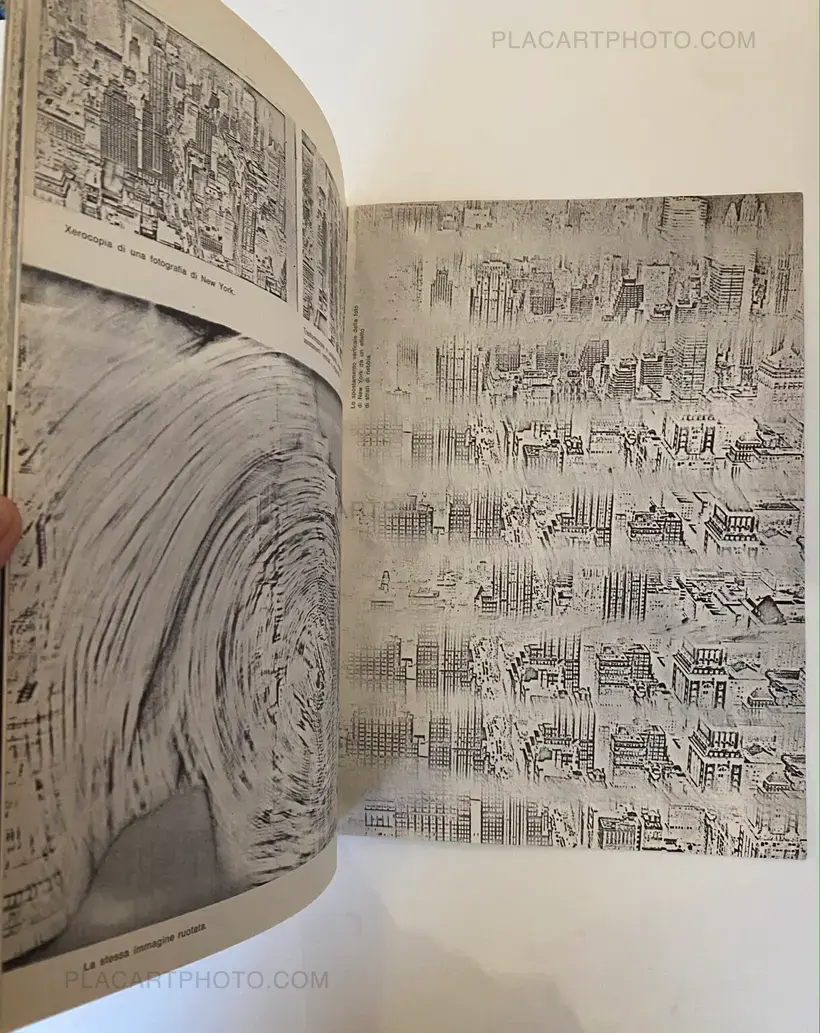 PLACARTPHOTO.COM
Xerocopia di una fotografia di New York.
Lo spostamento verticale della foto
di New York dà un effetto
di strati di nebbia.
La stessa immagine ruotata.
PLACARTPHOTO.COM